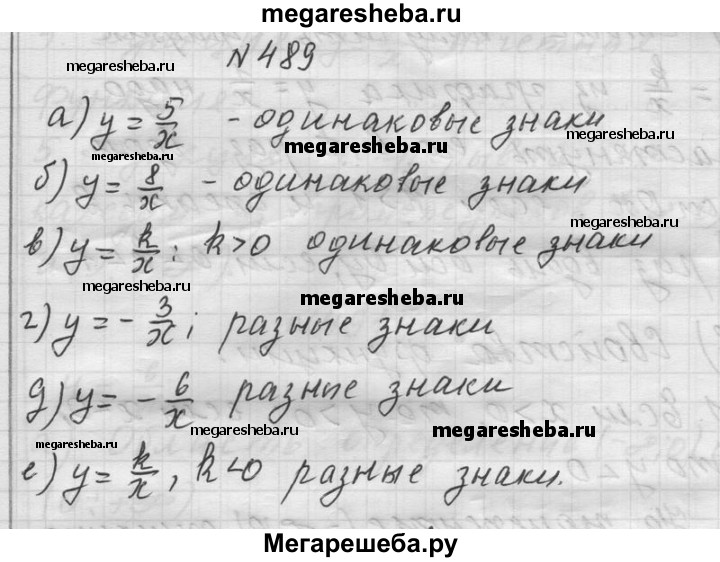 megaresheba.ru
№ 489
megaresheba.ru
а) y = 5/x - одинаковые знаки
megaresheba.ru
megaresheba.ru
megaresheba.ru
б) y = 8/x - одинаковые знаки
megaresheba.ru
в) y = k/x ; k>0 одинаковые знаки
megaresheba.ru
megaresheba.ru
г) y = - 3/x ; разные знаки
д) y = - 6/x разные знаки
megaresheba.ru
megaresheba.ru
megaresheba.ru
е) y = k/x , k<0 разные знаки.
Мегарешеба.ру